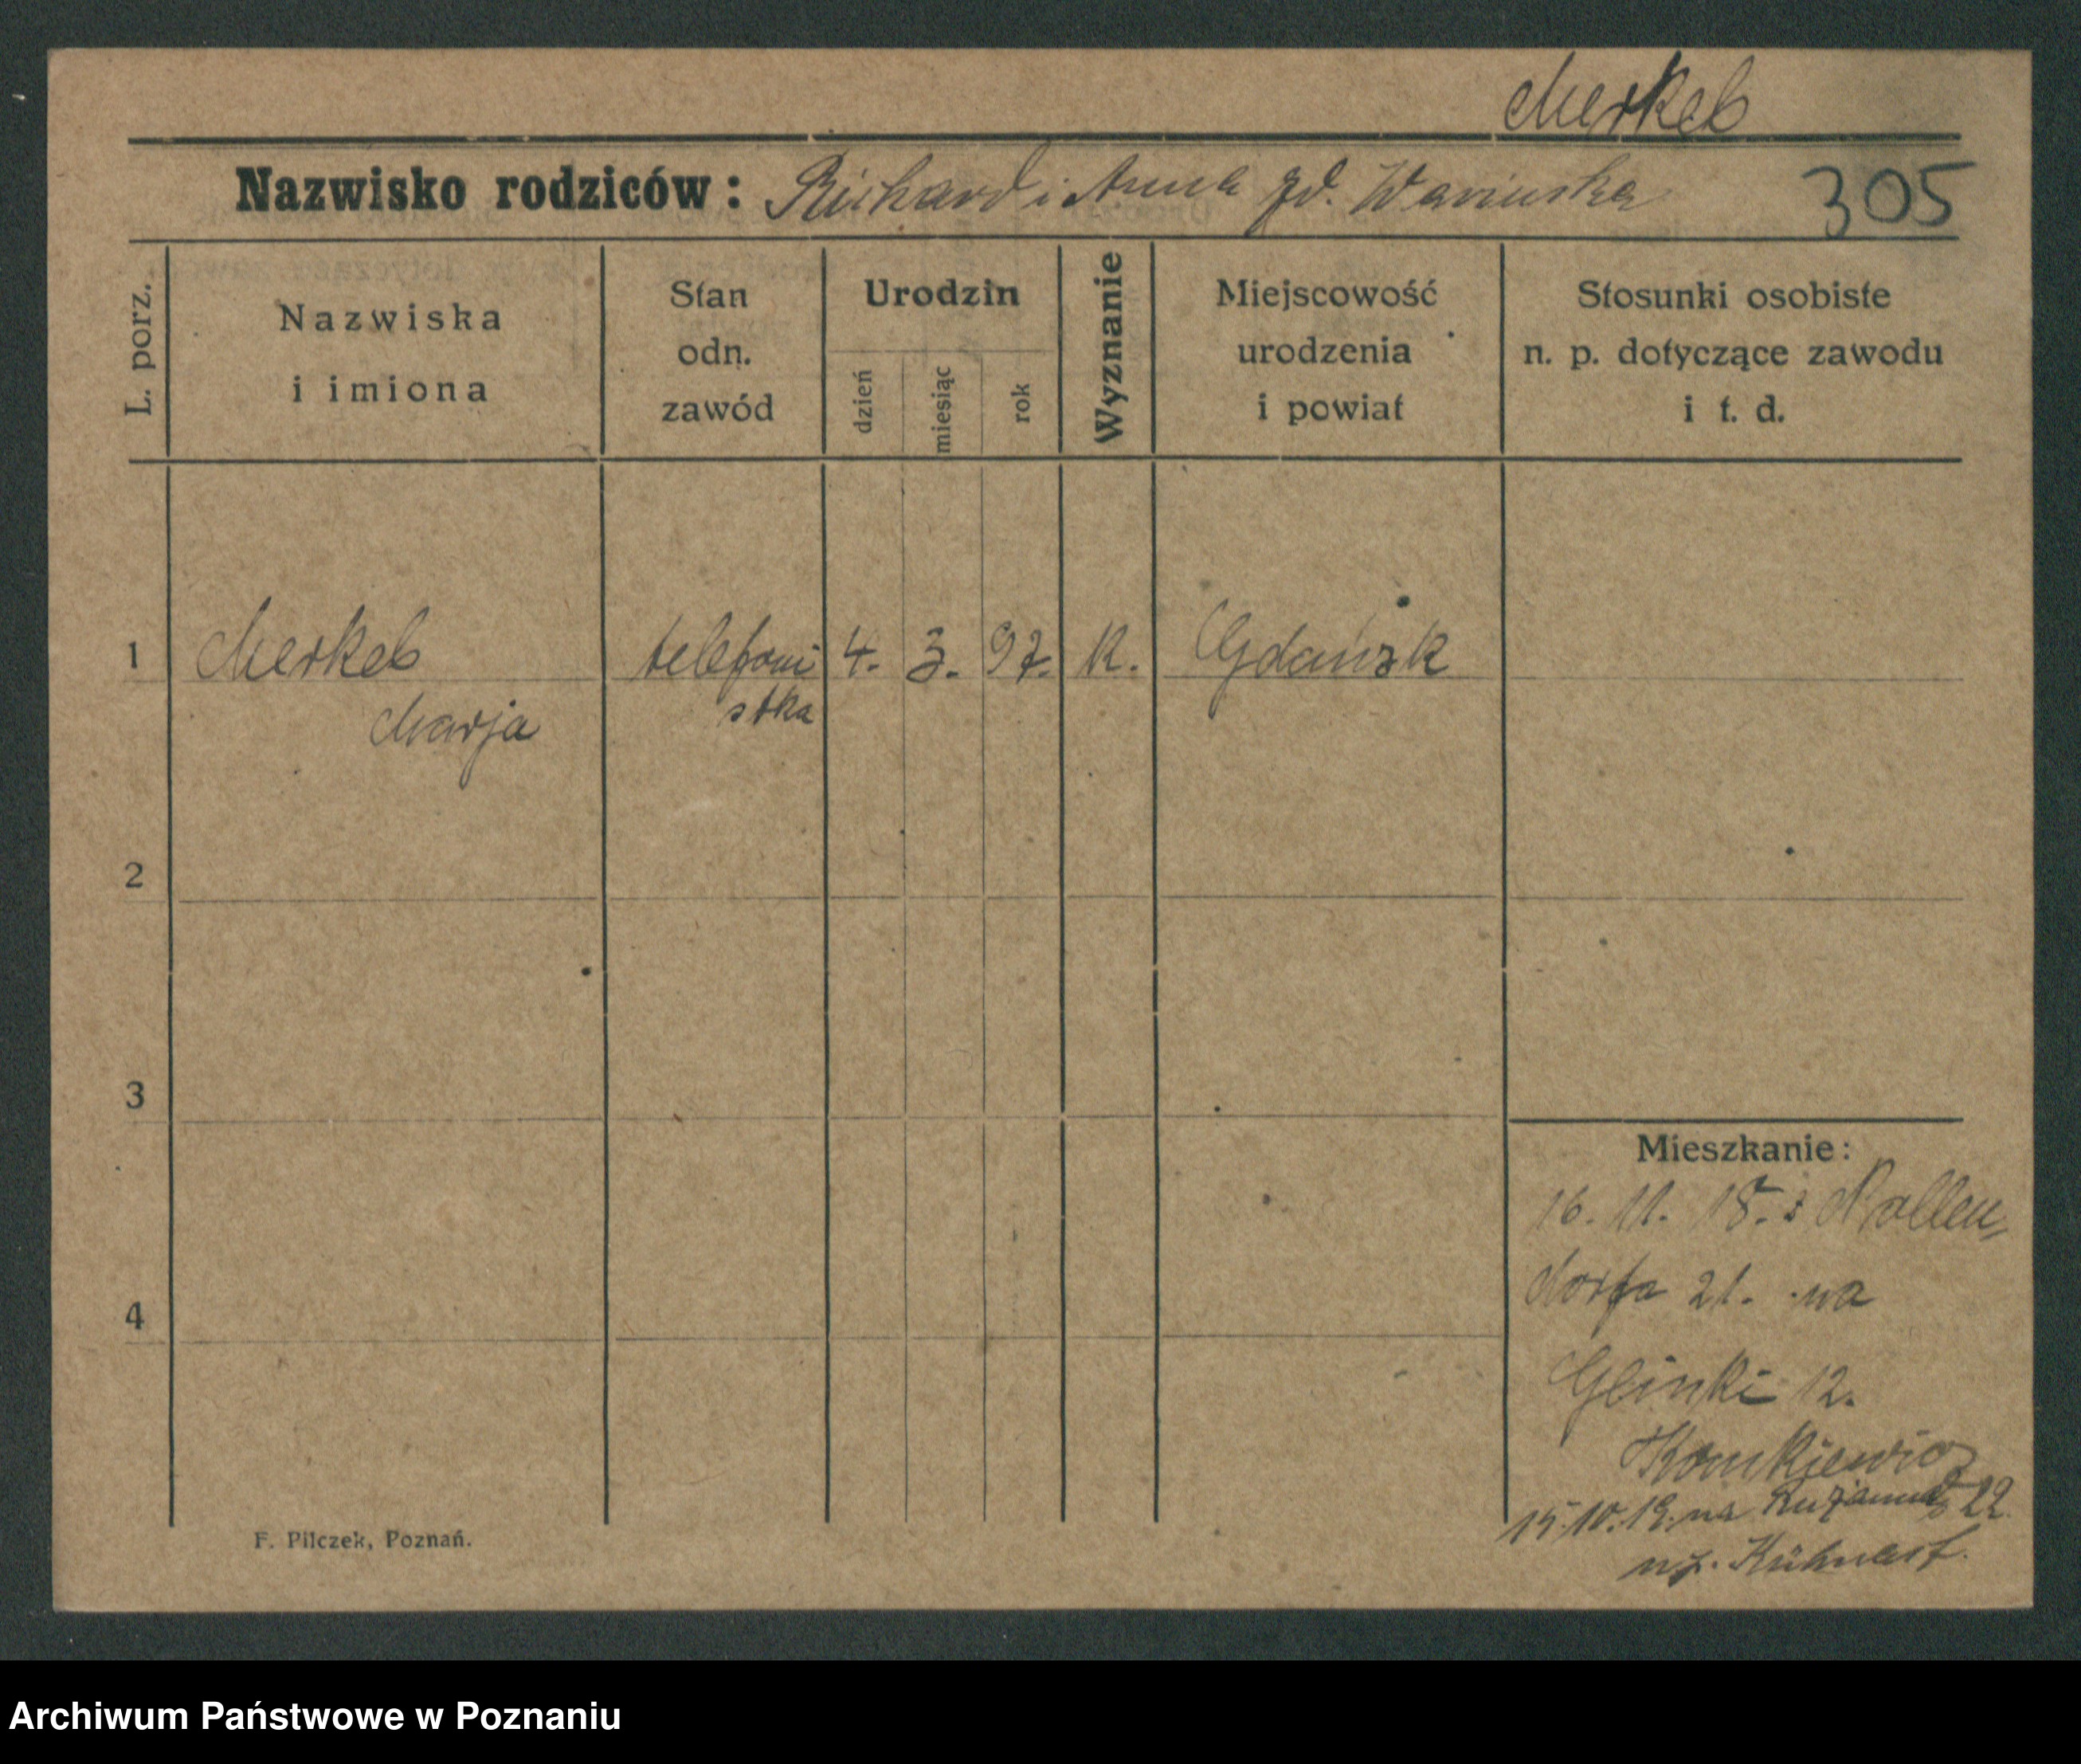 Merkel
Nazwisko rodziców: Richard i Anna zd.
305
L. porz.
Nazwiska
i imiona
Stan
odn.
zawód
Urodzin
dzień
miesiąc
rok
Wyznanie
Miejscowość
urodzenia
i powiat
Stosunki osobiste
n. p. dotyczące zawodu
i t. d.
1 Merkel telefoni 4. 3. 97. K. Gdańsk
Marja stka
2
3
4
Mieszkanie:
16. 11. 18. z Nollen-
dorfa 21. na
Glinki 12.
15.10.19. na 22
F. Pilczek, Poznań.
Archiwum Państwowe w Poznaniu